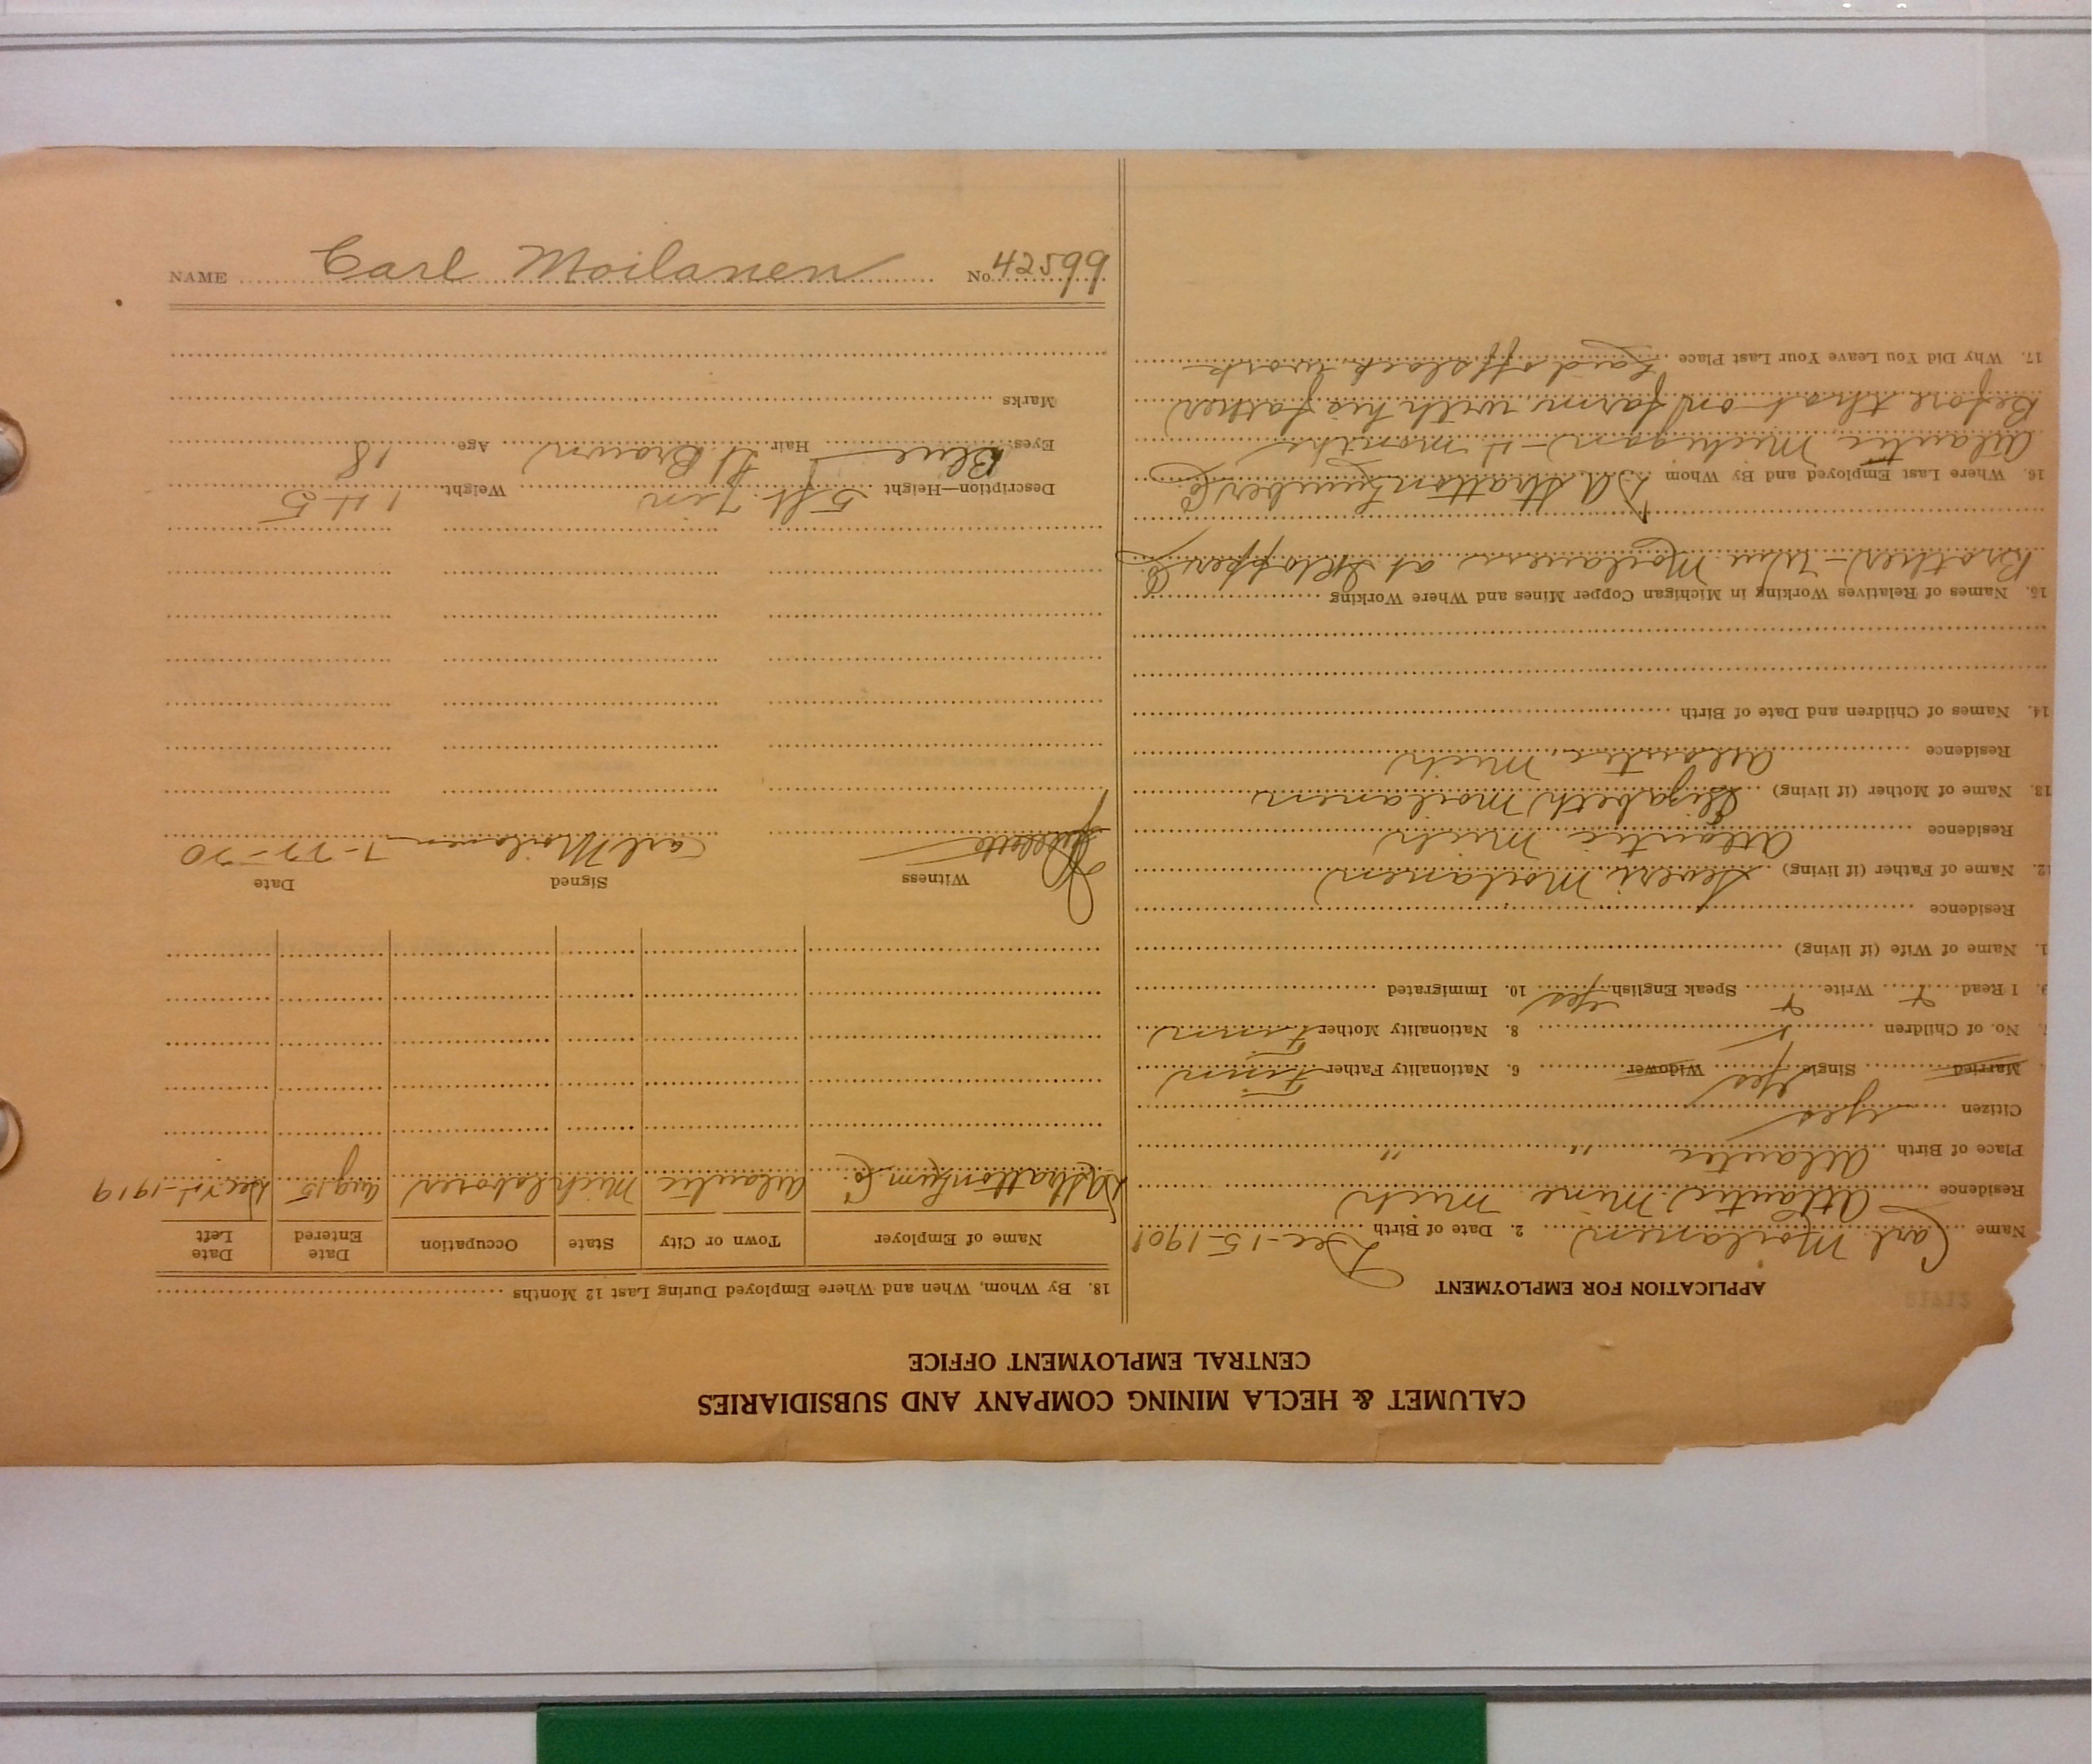 CALUMET & HECLA MINING COMPANY AND SUBSIDIARIES
CENTRAL EMPLOYMENT OFFICE
APPLICATION FOR EMPLOYMENT
Name Carl Moilanen 2. Date of Birth Dec-15-1901
Residence Atlantic Mine Mich
Place of Birth Atlantic " "
Citizen Yes
Married Single Yes Widower 6. Nationality Father Finn
No. of Children 8. Nationality Mother Finn
9. I Read Write Speak English yes 10. Immigrated
1. Name of Wife (if living)
Residence
12. Name of Father (if living) Severi Moilanen
Residence Atlantic Mich
13. Name of Mother (if living) Elizabeth Moilanen
Residence Atlantic Mich
14. Names of Children and Date of Birth
15. Names of Relatives Working in Michigan Copper Mines and Where Working
Brother - Wm Moilanen at Copper
16. Where Last Employed and By Whom D A Stratton Lumber Co
Atlantic Michigan - 4 months
Before that on farm with his father
17. Why Did You Leave Your Last Place Laid off slack work
18. By Whom, When and Where Employed During Last 12 Months
Name of Employer Town or City State Occupation Date Entered Date Left
DA Stratton Lum Co. Atlantic Mich laborer Aug 15 Dec 1919
Witness Signed Date
Carl Moilanen
Description—Height 5 ft 7 in Weight 145
Eyes Blue Hair Lt Brown Age 18
Marks
NAME Carl Moilanen No. 42599